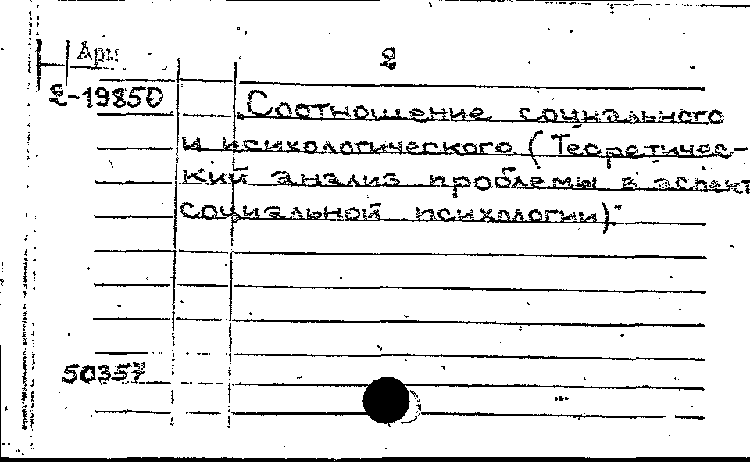 Арм 2
2-19850 „Соотношение социального
и психологического (Теоретичес-
кий анализ проблемы в аспект
социальной психологии)"
50357